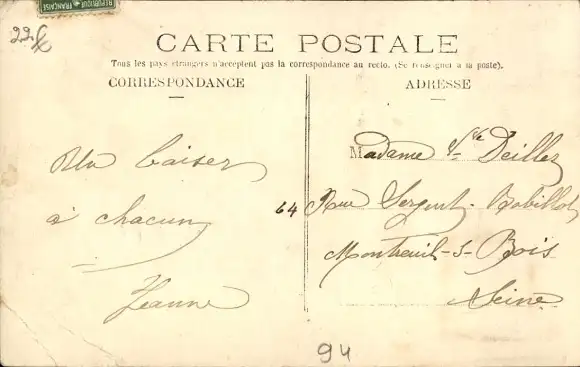 RÉPUBLIQUE FRANÇAISE
CARTE POSTALE
Tous les pays étrangers n'acceptent pas la correspondance au recto. (Se renseigner à la poste).
CORRESPONDANCE
Un baiser
à chacun
Jeanne
ADRESSE
Madame Vve Deillez
64 Rue Sergent Bobillot
Montreuil-s-Bois
Seine
94